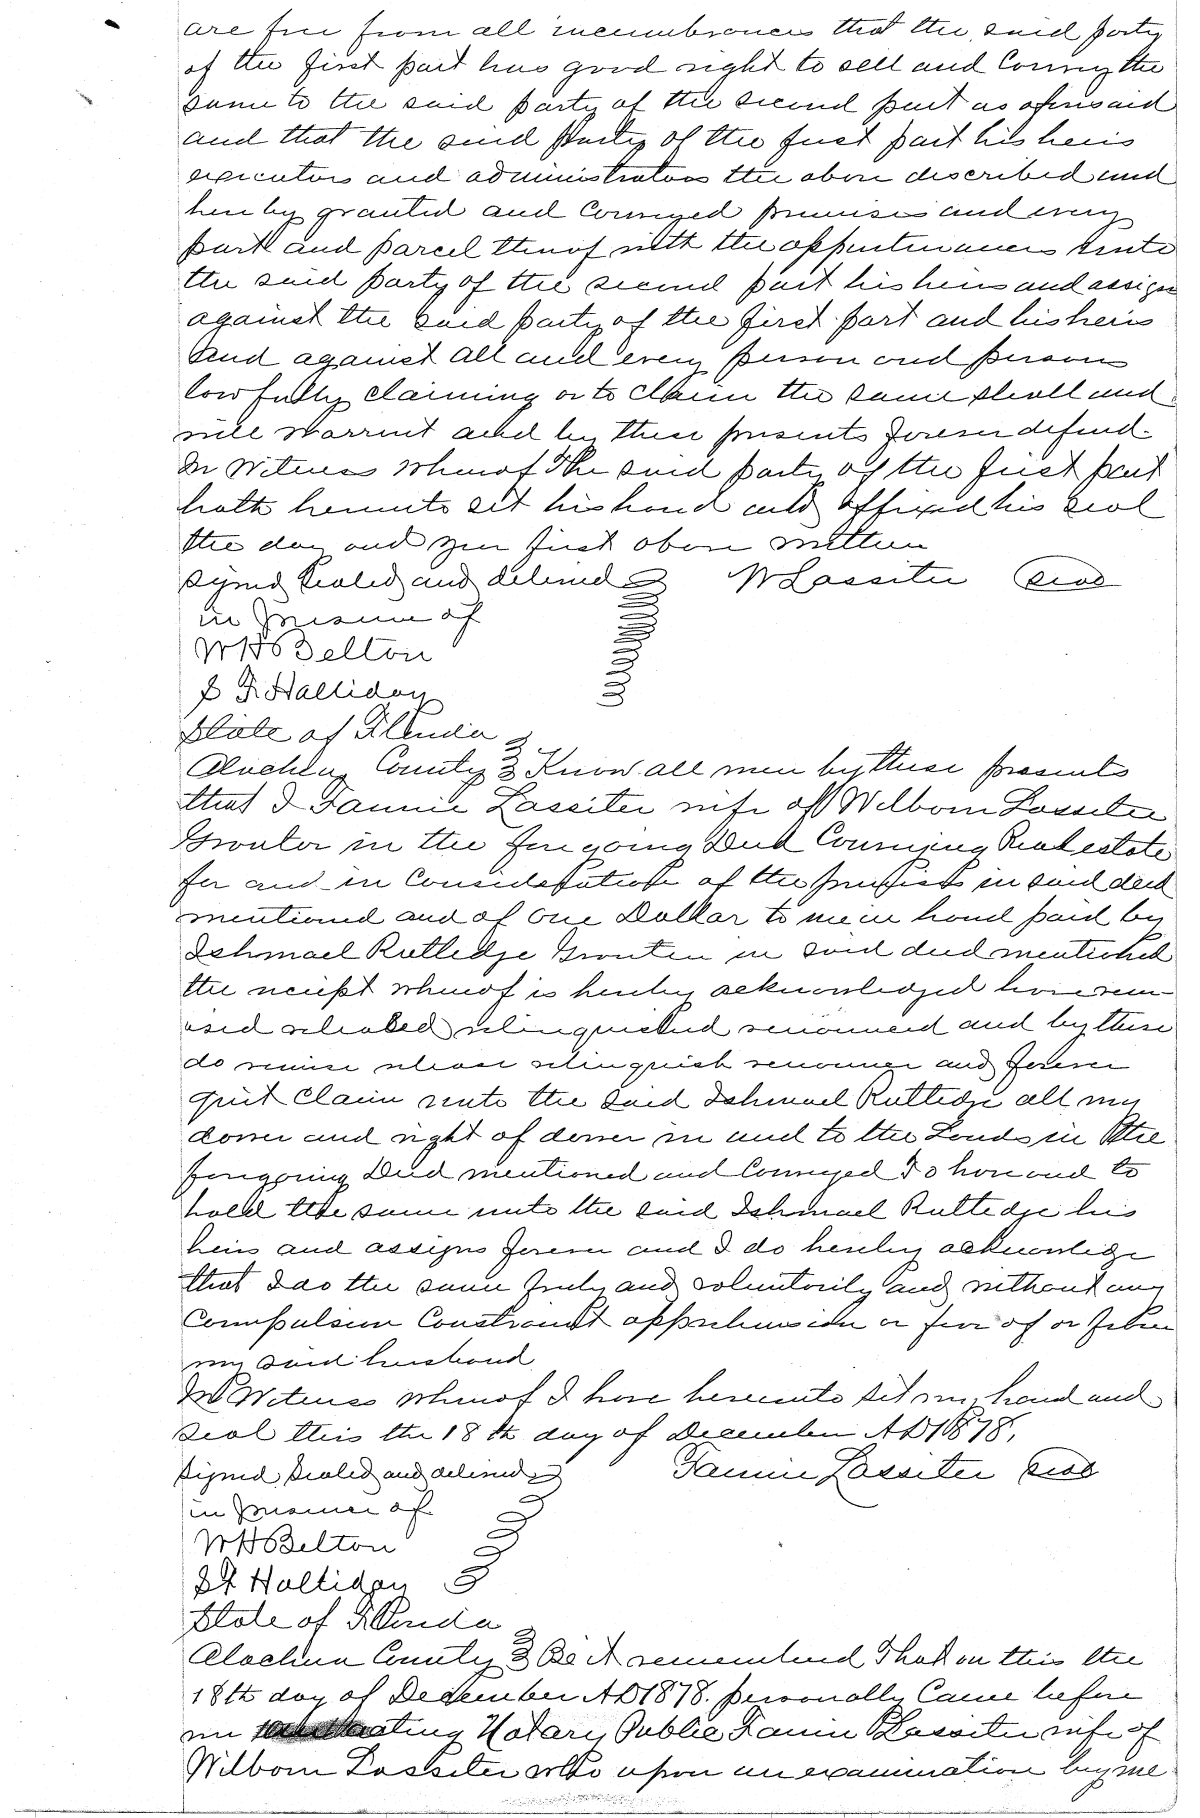 are free from all incumbrances that the said party
of the first part has good right to sell and Convey the
same to the said party of the second part as aforesaid
and that the said party of the first part his heirs
executors and administrators the above described and
hereby granted and Conveyed premises and every
part and parcel thereof with the appurtenances unto
the said party of the second part his heirs and assigns
against the said party of the first part and his heirs
and against all and every person and persons
lawfully claiming or to claim the same shall and
will warrant and by these presents forever defend.
In Witness whereof The said party of the first part
hath hereunto set his hand and affixed his seal
the day and year first above written
Signed Sealed and delivered W Lassiter Seal
in presence of
W H Belton
J F Halliday
State of Florida
Alachua County Know all men by these presents
that I Fannie Lassiter wife of Wilborn Lassiter
Grantor in the foregoing Deed Conveying Real estate
for and in Consideration of the premises in said deed
mentioned and of One Dollar to me in hand paid by
Ishmael Rutledge Grantee in said deed mentioned
the receipt whereof is hereby acknowledged have rem
ised released relinquished renounced and by these
do remise release relinquish renounce and forever
quit Claim unto the said Ishmael Rutledge all my
dower and right of dower in and to the Lands in the
foregoing Deed mentioned and Conveyed To have and to
hold the same unto the said Ishmael Rutledge his
heirs and assigns forever and I do hereby acknowledge
that I do the same freely and voluntarily and without any
Compulsion Constraint apprehension or fear of or from
my said husband
In Witness whereof I have hereunto set my hand and
seal this the 18th day of December AD 1878.
Signed Sealed and delivered Fannie Lassiter Seal
in presence of
W H Belton
J F Halliday
State of Florida
Alachua County Be it remembered That on this the
18th day of December AD 1878. personally Came before
me acting Notary Public Fannie Lassiter wife of
Wilborn Lassiter who upon an examination by me